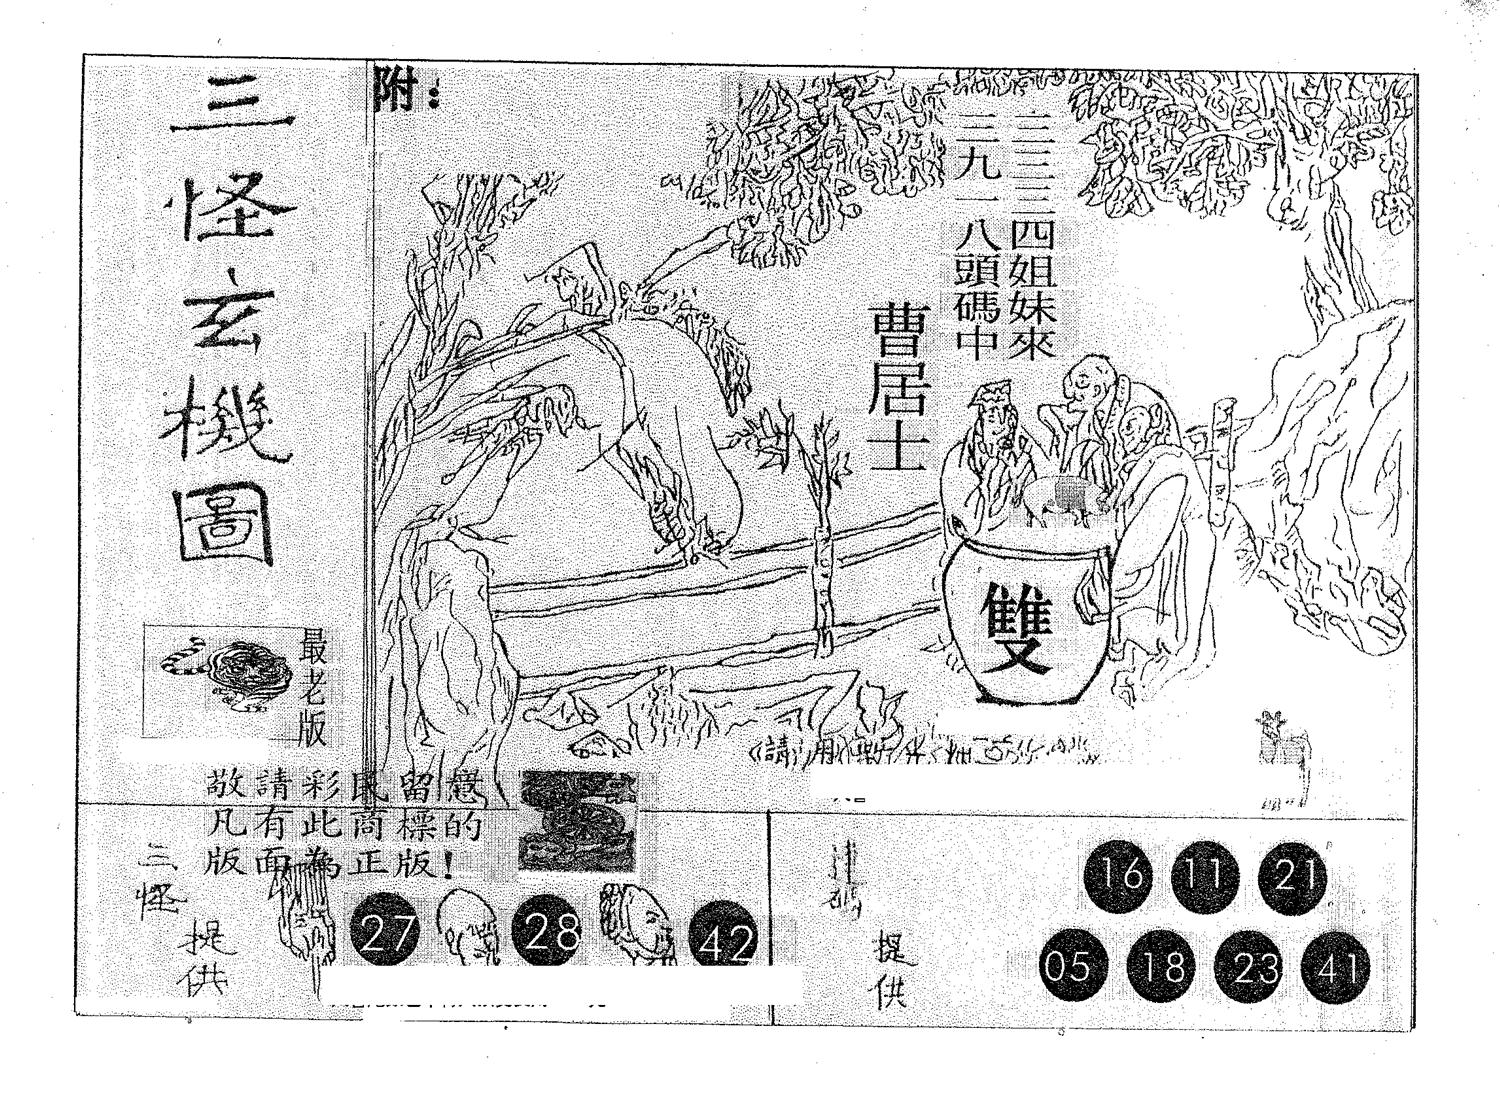 三怪玄機圖
附：
二三三四姐妹來
三九一八頭碼中
曹居士
雙
最老版
敬請彩民留意
凡有此商標的
版面為正版！
三怪
提供
27 28 42
提供
16 11 21
05 18 23 41